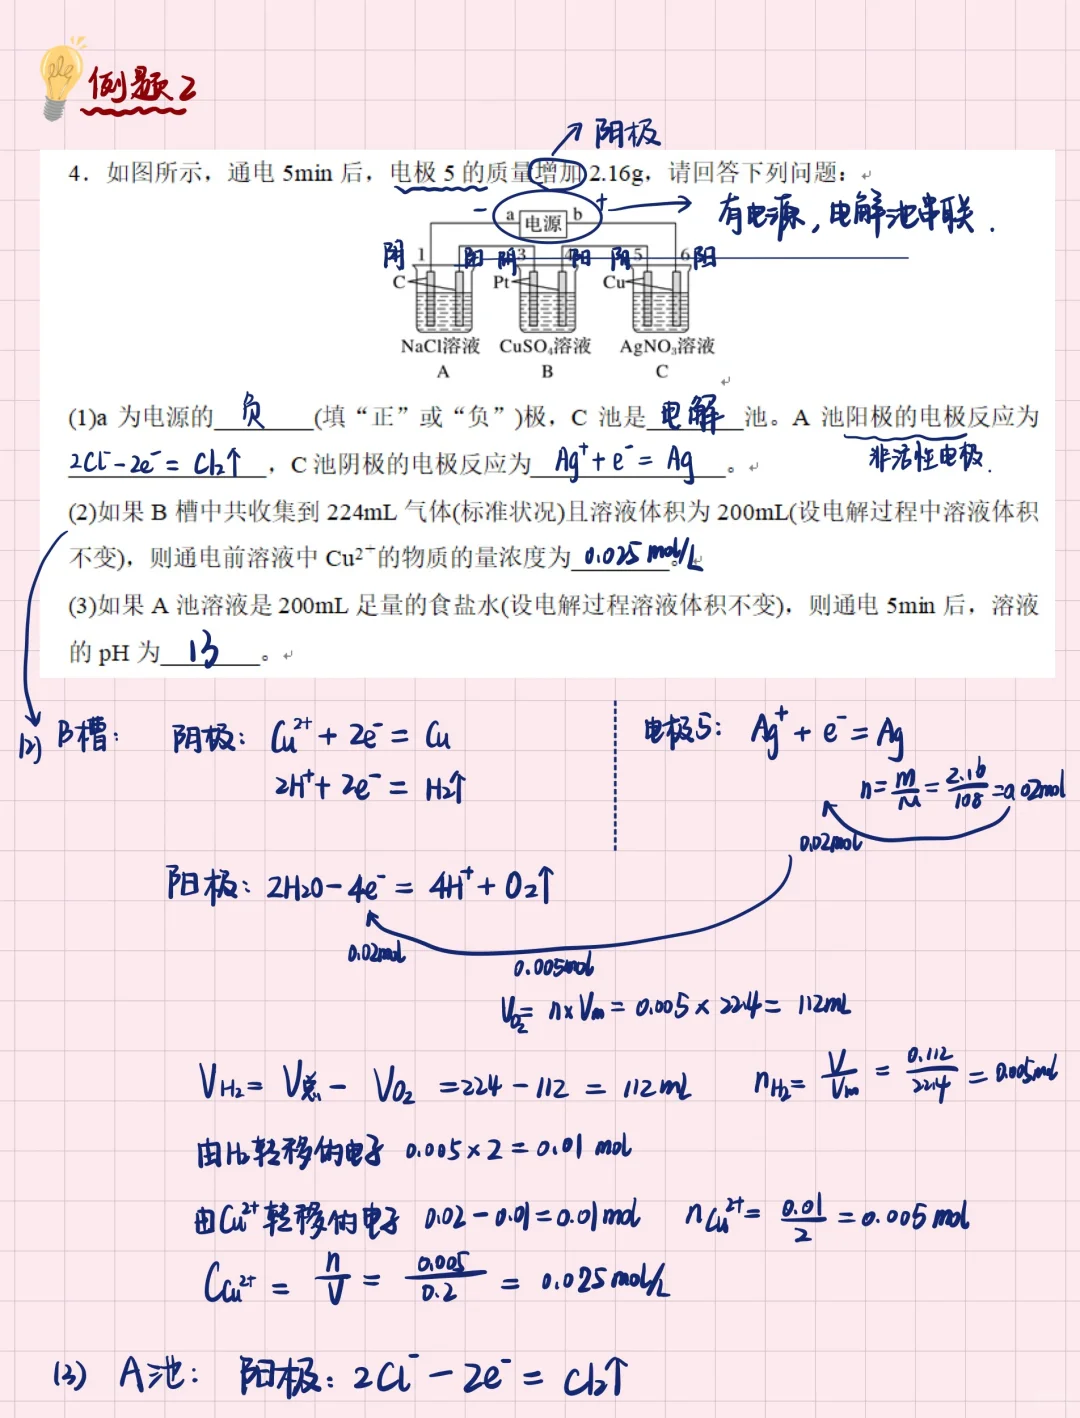 例题2
阳极
4．如图所示，通电 5min 后，电极 5 的质量增加 2.16g，请回答下列问题：
- a 电源 b +
有电源，电解池串联.
阴 1 阳 阴 3 阳 4 阴 5 阳 6
C Pt Cu
NaCl溶液 CuSO₄溶液 AgNO₃溶液
A B C
(1)a 为电源的 负 (填“正”或“负”)极，C 池是 电解 池。A 池阳极的电极反应为
非活性电极.
2Cl⁻-2e⁻=Cl₂↑，C 池阴极的电极反应为 Ag⁺+e⁻=Ag 。
(2)如果 B 槽中共收集到 224mL 气体(标准状况)且溶液体积为 200mL(设电解过程中溶液体积
不变)，则通电前溶液中 Cu²⁺的物质的量浓度为 0.025mol/L。
(3)如果 A 池溶液是 200mL 足量的食盐水(设电解过程溶液体积不变)，则通电 5min 后，溶液
的 pH 为 13 。
(2) B槽： 阴极：Cu²⁺+2e⁻=Cu
2H⁺+2e⁻=H₂↑
电极5：Ag⁺+e⁻=Ag
n=m/M=2.16/108=0.02mol
0.02mol
阳极：2H₂O-4e⁻=4H⁺+O₂↑
0.02mol
0.005mol
V_O₂=n×Vm=0.005×22.4=112mL
V_H₂=V总-V_O₂=224-112=112mL n_H₂=V/Vm=0.112/22.4=0.005mol
由H₂转移的电子 0.005×2=0.01mol
由Cu²⁺转移的电子 0.02-0.01=0.01mol n_Cu²⁺=0.01/2=0.005mol
C_Cu²⁺=n/V=0.005/0.2=0.025mol/L
(3) A池：阳极：2Cl⁻-2e⁻=Cl₂↑